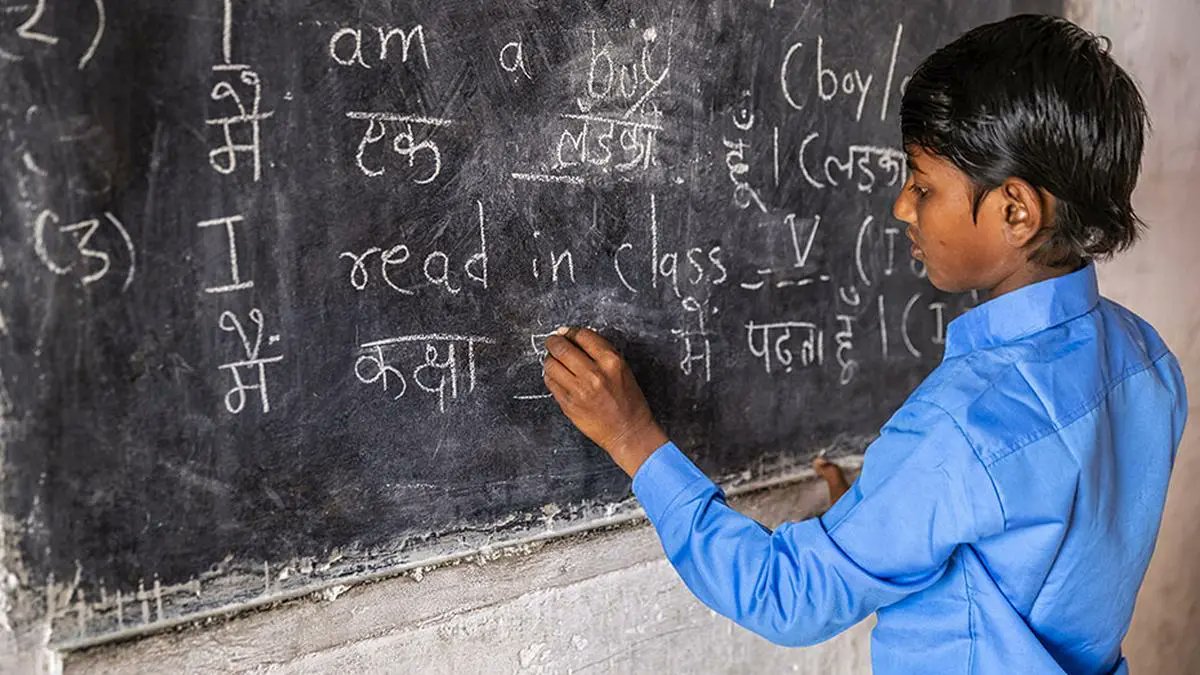 2) I am a boy (boy/
मैं एक लड़का हूँ। (लड़का
(3) I read in class V (I
मैं कक्षा में पढ़ता हूँ। (I